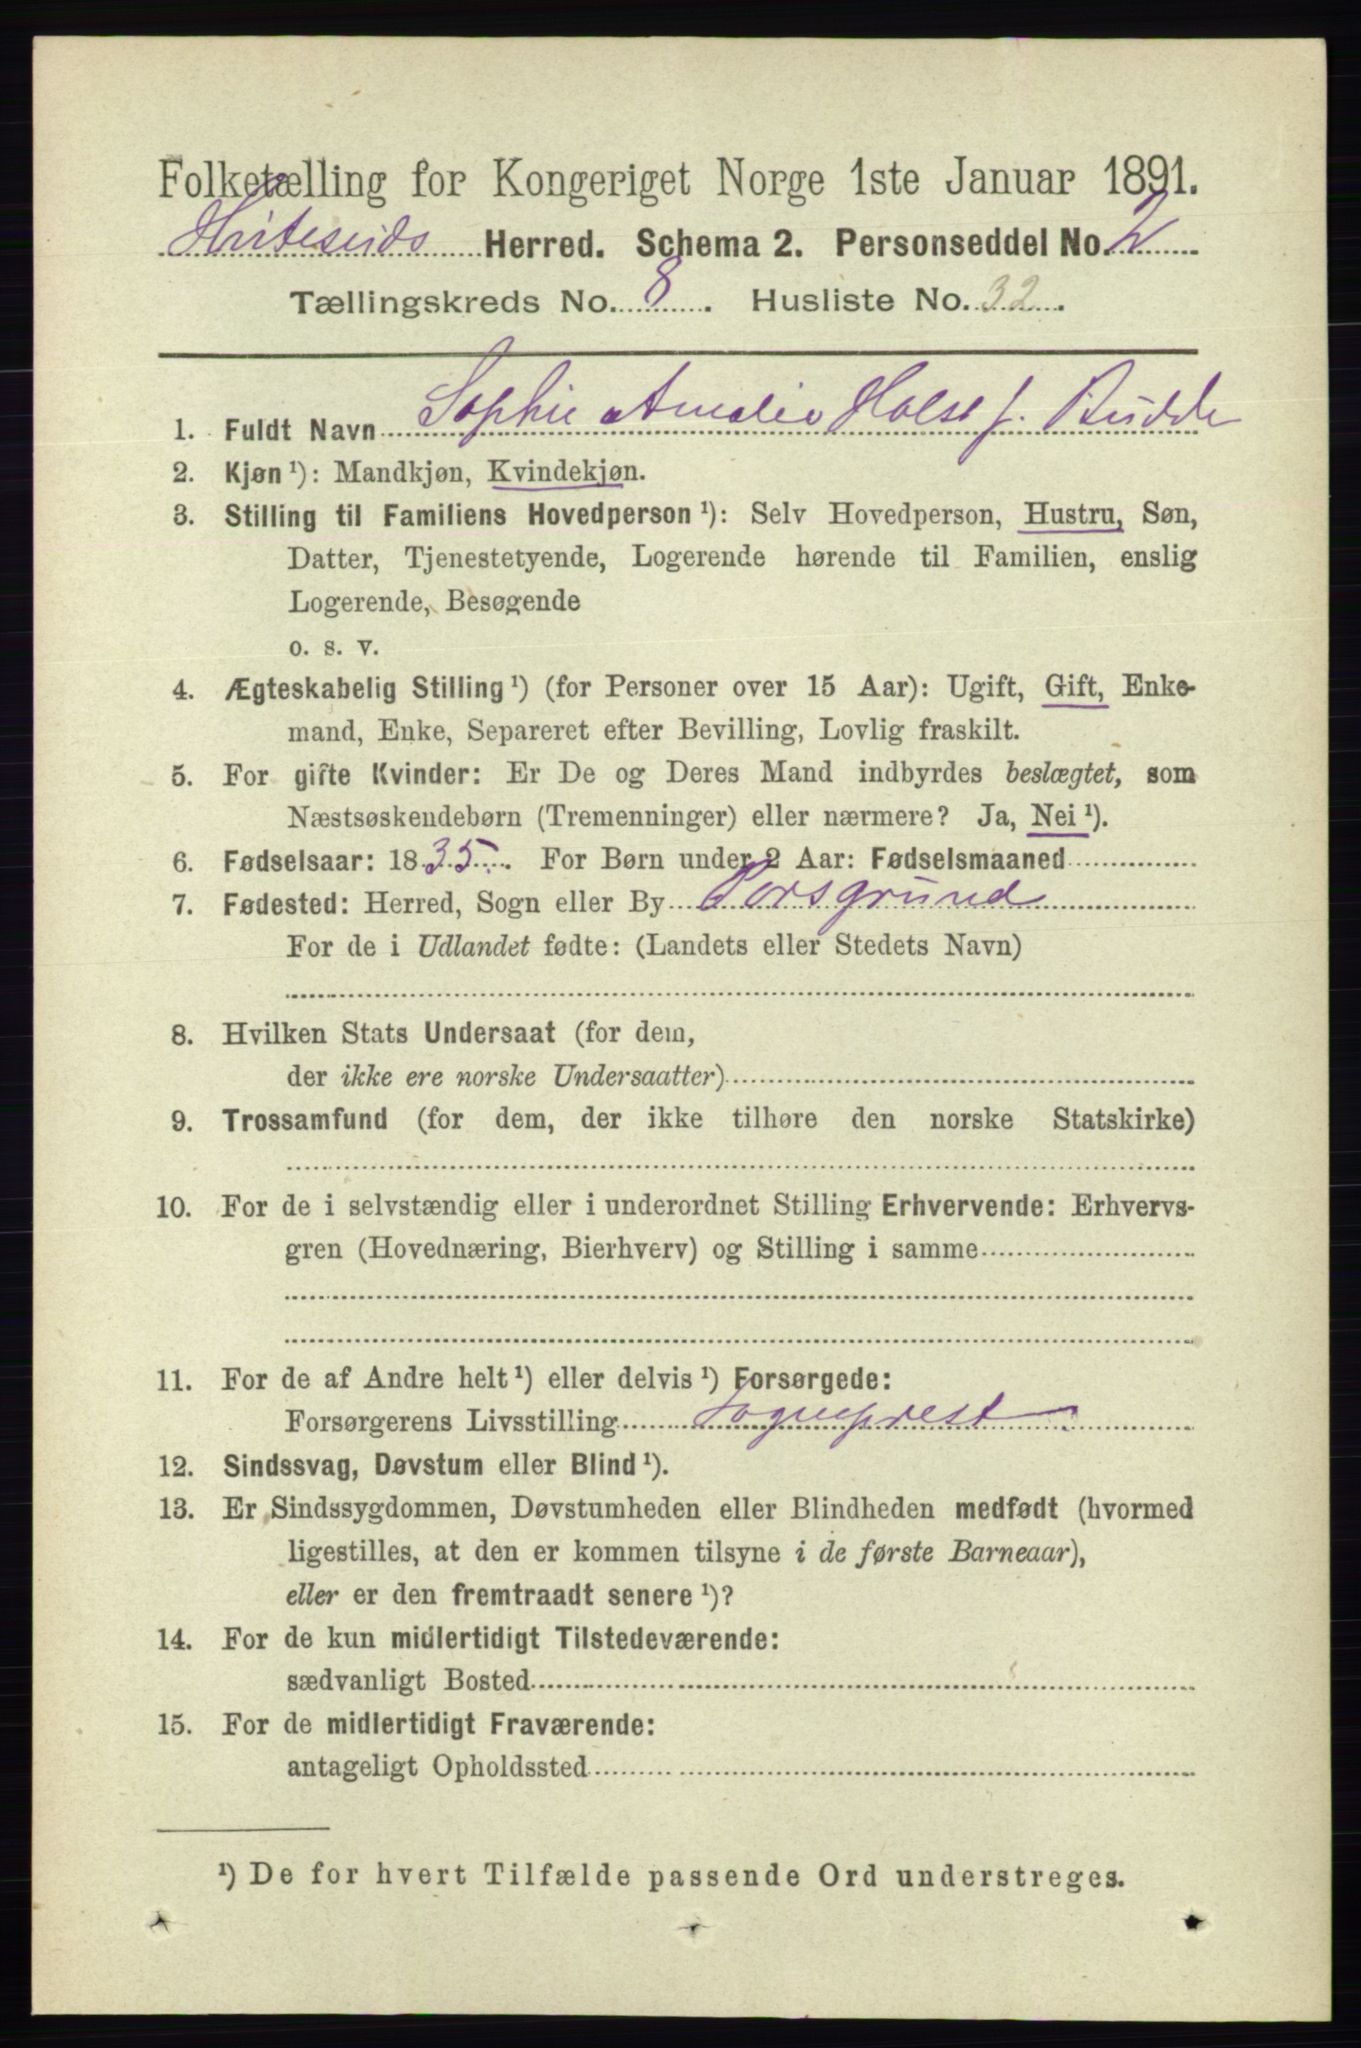 Folketælling for Kongeriget Norge 1ste Januar 1891.
Hviteseids Herred. Schema 2. Personseddel No. 2
Tællingskreds No. 8. Husliste No. 32.
1. Fuldt Navn Sophie Amalie Holst f. Budde
2. Kjøn ¹): Mandkjøn, Kvindekjøn.
3. Stilling til Familiens Hovedperson ¹): Selv Hovedperson, Hustru, Søn,
Datter, Tjenestetyende, Logerende hørende til Familien, enslig
Logerende, Besøgende
o. s. v.
4. Ægteskabelig Stilling ¹) (for Personer over 15 Aar): Ugift, Gift, Enke-
mand, Enke, Separeret efter Bevilling, Lovlig fraskilt.
5. For gifte Kvinder: Er De og Deres Mand indbyrdes beslægtet, som
Næstsøskendebørn (Tremenninger) eller nærmere? Ja, Nei ¹).
6. Fødselsaar: 1835. For Børn under 2 Aar: Fødselsmaaned
7. Fødested: Herred, Sogn eller By Porsgrund
For de i Udlandet fødte: (Landets eller Stedets Navn)
8. Hvilken Stats Undersaat (for dem,
der ikke ere norske Undersaatter)
9. Trossamfund (for dem, der ikke tilhøre den norske Statskirke)
10. For de i selvstændig eller i underordnet Stilling Erhvervende: Erhvervs-
gren (Hovednæring, Bierhverv) og Stilling i samme
11. For de af Andre helt ¹) eller delvis ¹) Forsørgede:
Forsørgerens Livsstilling Sogneprest
12. Sindssvag, Døvstum eller Blind ¹).
13. Er Sindssygdommen, Døvstumheden eller Blindheden medfødt (hvormed
ligestilles, at den er kommen tilsyne i de første Barneaar),
eller er den fremtraadt senere ¹)?
14. For de kun midlertidigt Tilstedeværende:
sædvanligt Bosted
15. For de midlertidigt Fraværende:
antageligt Opholdssted
¹) De for hvert Tilfælde passende Ord understreges.